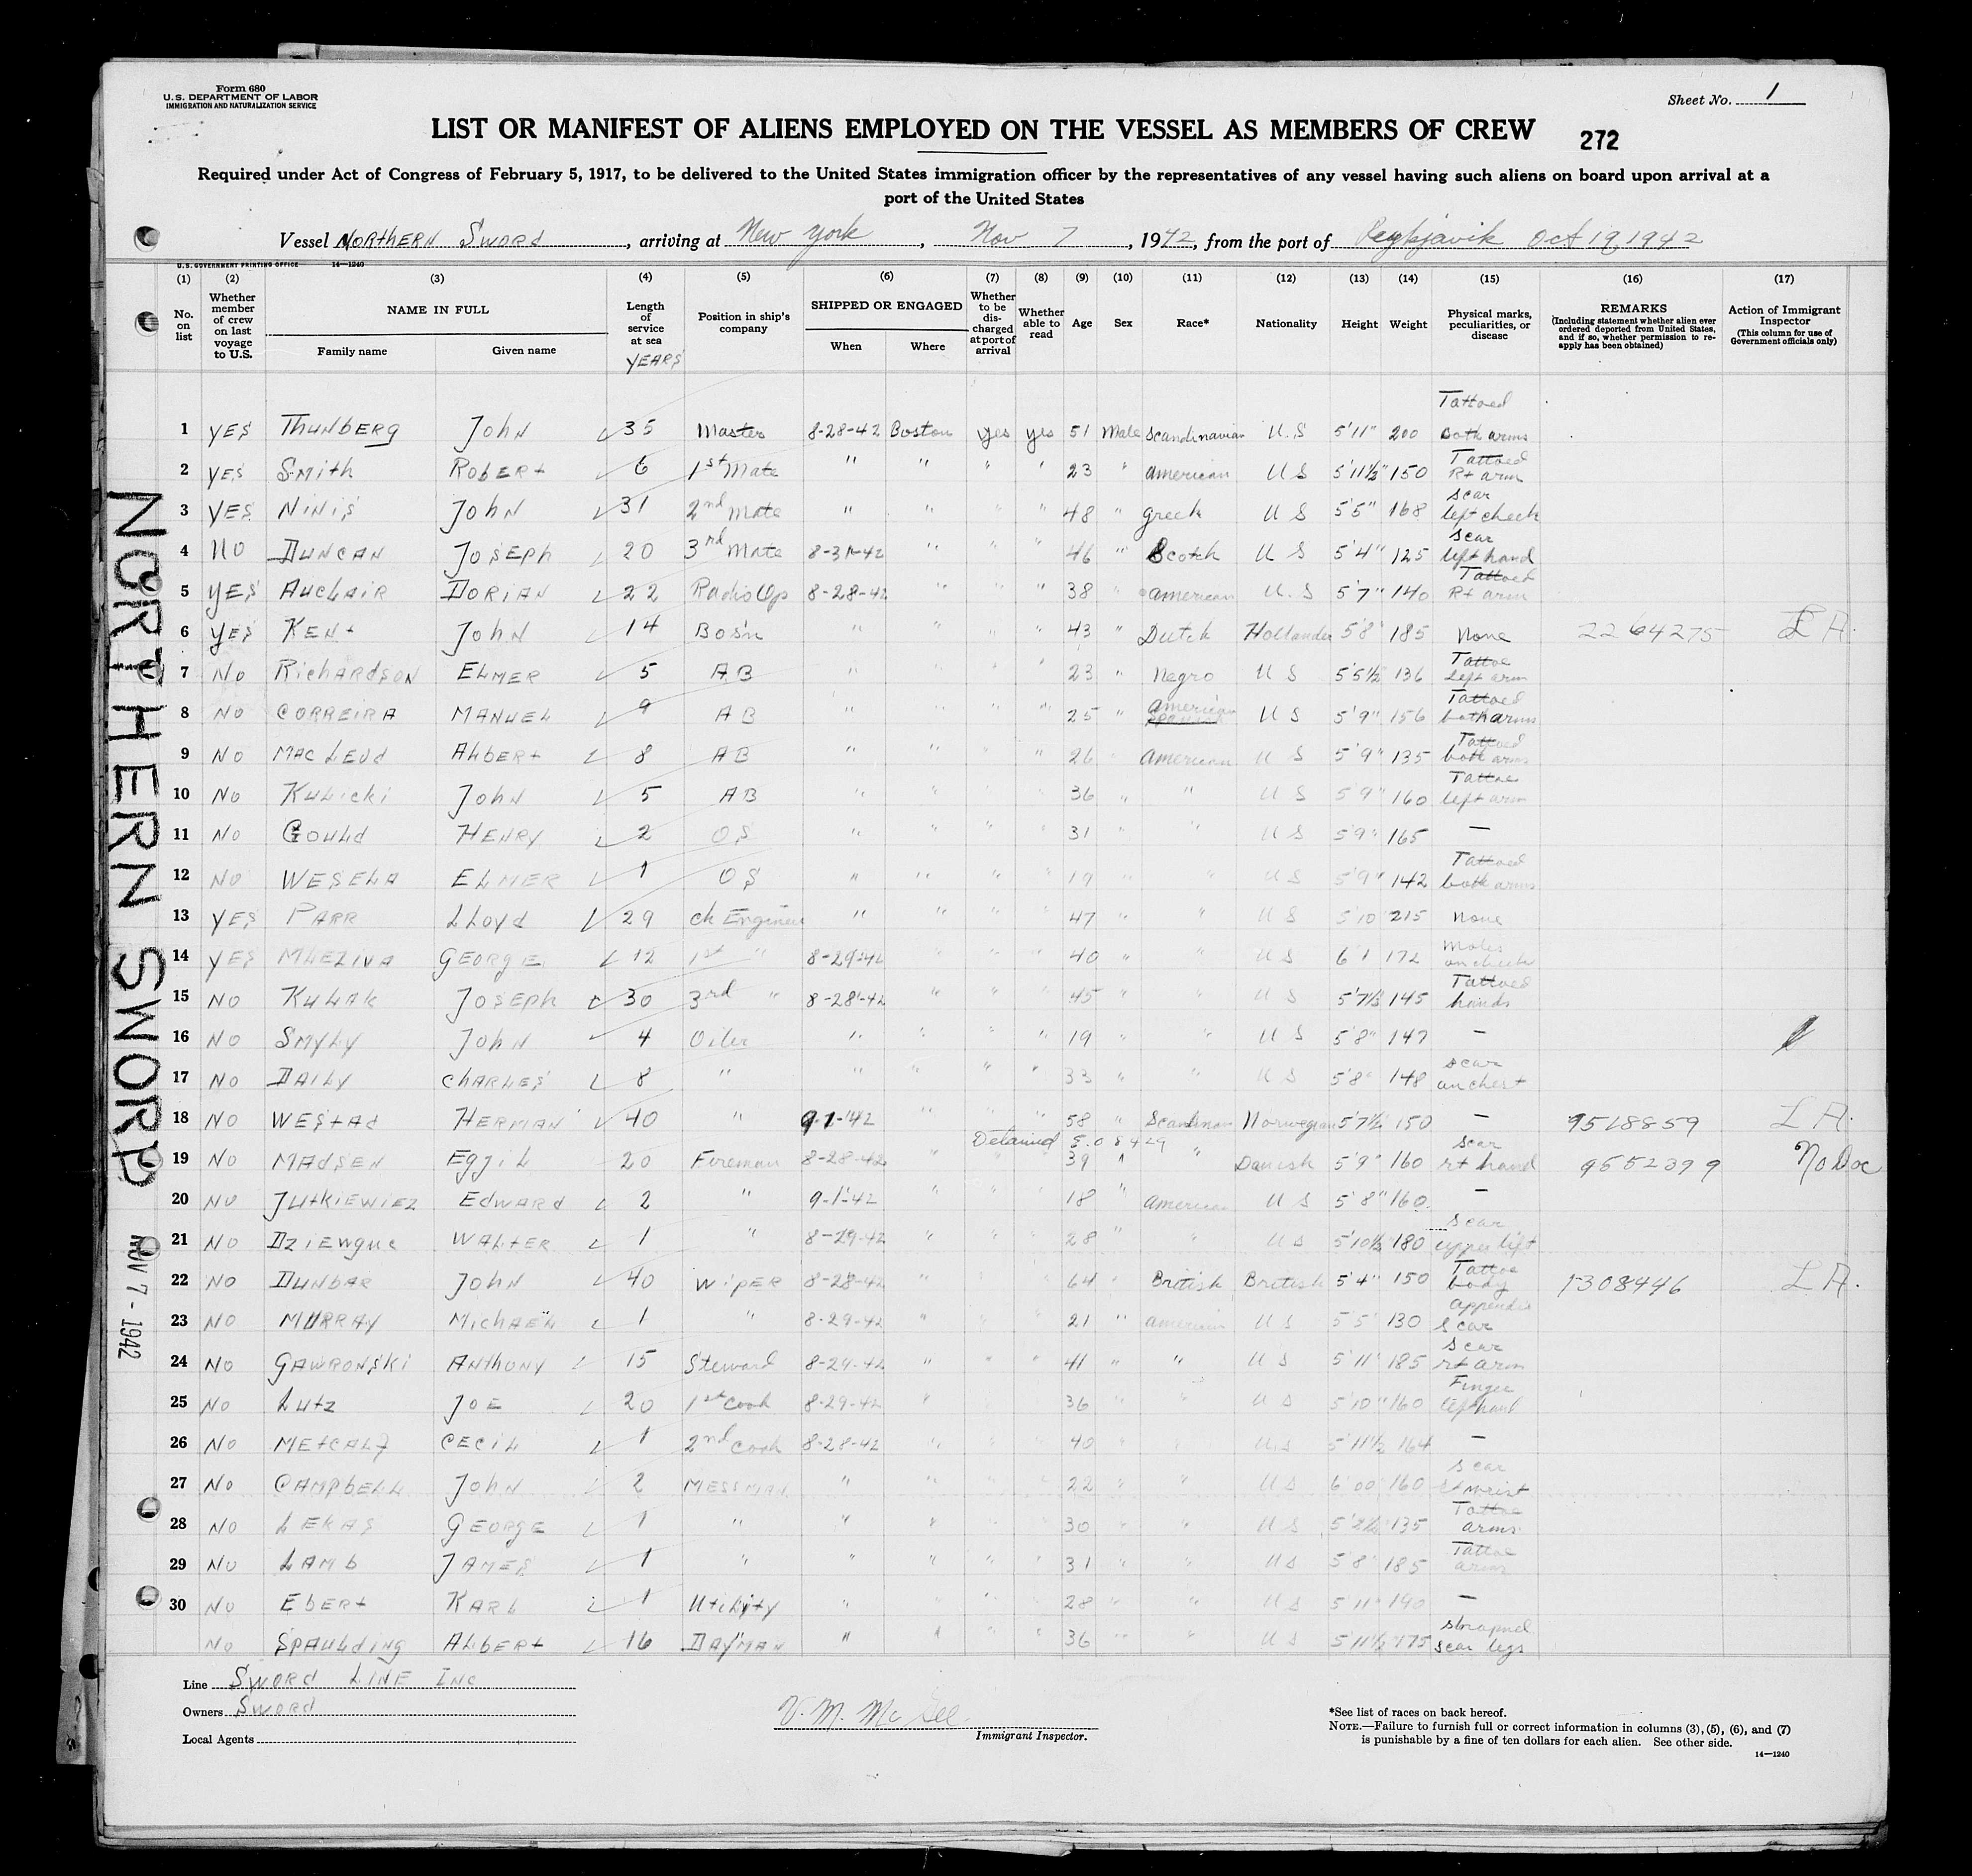 Form 680
U.S. DEPARTMENT OF LABOR
IMMIGRATION AND NATURALIZATION SERVICE
Sheet No. 1
LIST OR MANIFEST OF ALIENS EMPLOYED ON THE VESSEL AS MEMBERS OF CREW
272
Required under Act of Congress of February 5, 1917, to be delivered to the United States immigration officer by the representatives of any vessel having such aliens on board upon arrival at a
port of the United States
Vessel NORTHERN SWORD, arriving at New York, Nov 7, 1942, from the port of Reykjavik Oct 19, 1942
U.S. GOVERNMENT PRINTING OFFICE 14—1240
(1) (2) (3) (4) (5) (6) (7) (8) (9) (10) (11) (12) (13) (14) (15) (16) (17)
No. on list
Whether member of crew on last voyage to U.S.
NAME IN FULL
Family name Given name
Length of service at sea
YEARS
Position in ship's company
SHIPPED OR ENGAGED
When Where
Whether to be discharged at port of arrival
Whether able to read
Age Sex Race* Nationality Height Weight
Physical marks, peculiarities, or disease
REMARKS
(Including statement whether alien ever ordered deported from United States, and if so, whether permission to reapply has been obtained)
Action of Immigrant Inspector
(This column for use of Government officials only)
1 YES THUNBERG JOHN 35 Master 8-28-42 Boston yes yes 51 Male Scandinavian U.S 5'11" 200 Tattoed both arms
2 YES SMITH ROBERT 6 1st Mate " " " " 23 " american U S 5'11½" 150 Tattoed Rt arm
3 YES NINIS JOHN 31 2nd Mate " " " " 48 " Greek U S 5'5" 168 scar left cheek
4 NO DUNCAN JOSEPH 20 3rd Mate 8-31-42 " " " 46 " Scotch U S 5'4" 125 scar left hand
5 YES AUCLAIR DORIAN 22 Radio Op 8-28-42 " " " 38 " american U.S 5'7" 140 Tattoed Rt arm
6 YES KENT JOHN 14 Bos'n " " " " 43 " Dutch Hollander 5'8" 185 None 2264275 L A.
7 NO RICHARDSON ELMER 5 AB " " " " 23 " Negro U S 5'5½ 136 Tattoe left arm
8 NO CORREIRA MANUEL 9 AB " " " " 25 " american U S 5'9" 156 Tattoed both arms
9 NO MACLEOD ALBERT 8 AB " " " " 26 american U S 5'9" 135 Tattoed both arms
10 NO KULICKI JOHN 5 AB " " " 36 " " U S 5'9" 160 Tattoe left arm
11 NO GOULD HENRY 2 OS " " " " 31 " " U S 5'9" 165 —
12 NO WESELA ELMER 1 OS " " " " 19 " " U S 5'9" 142 Tattoed both arms
13 YES PARR LLOYD 29 ch Engineer " " " " 47 " " U S 5'10 215 None
14 YES MLEZIVA GEORGE 12 1st " 8-29-42 " " " 40 " " U S 6'1 172 Moles on cheeks
15 NO KULAK JOSEPH 30 3rd " 8-28-42 " " " 45 " " U S 5'7½ 145 Tattoed hands
16 NO SMYLY JOHN 4 Oiler " " " " 19 " " U S 5'8" 147 —
17 NO DAILY CHARLES 8 " " " " " 33 " " U S 5'8" 148 scar on chest
18 NO WESTAD HERMAN 40 " 9-1-42 " " " 58 " Scandinan Norwegian 5'7½ 150 — 9518859 L A.
Detained 5.08429
19 NO MADSEN EGGIL 20 Fireman 8-28-42 " " " 39 " " Danish 5'9" 160 scar rt hand 9552399 No Doc
20 NO JUTKIEWIEZ EDWARD 2 " 9-1-42 " " " 18 " american U S 5'8" 160 —
21 NO DZIENGUC WALTER 1 " 8-29-42 " " " 28 " " U S 5'10½ 180 scar upper lip
22 NO DUNBAR JOHN 40 WIPER 8-28-42 " " 64 " British British 5'4" 150 Tattoe body 1308446 L A.
23 NO MURRAY MICHAEL 1 " 8-29-42 " " " 21 " american U S 5'5" 130 appendix scar
24 NO GAWRONSKI ANTHONY 15 Steward 8-29-42 " " " 41 " " U S 5'11" 185 scar rt arm
25 NO LUTZ JOE 20 1st Cook 8-29-42 " " " 36 " " U S 5'10" 160 Finger left hand
26 NO METCALF CECIL 1 2nd cook 8-28-42 " " " 40 " " U.S 5'11½ 164 —
27 NO CAMPBELL JOHN 2 MESSMAN " " " " 22 " " U S 6'00 160 scar rt wrist
28 NO LEKAS GEORGE 1 " " " " " 30 " " U S 5'2½ 135 Tattoe arms
29 NO LAMB JAMES 1 " " " " " 31 " " U S 5'8" 185 Tattoe arm
30 NO EBERT KARL 1 Utility " " " 28 " " U S 5'11" 190 —
NO SPAULDING ALBERT 16 DAYMAN " " 36 " " U S 5'11½ 175 shrapnel scar legs
NORTHERN SWORD
NOV 7 - 1942
Line SWORD LINE INC
Owners SWORD
Local Agents
V. M. McGee
Immigrant Inspector.
*See list of races on back hereof.
NOTE.—Failure to furnish full or correct information in columns (3), (5), (6), and (7)
is punishable by a fine of ten dollars for each alien. See other side.
14—1240